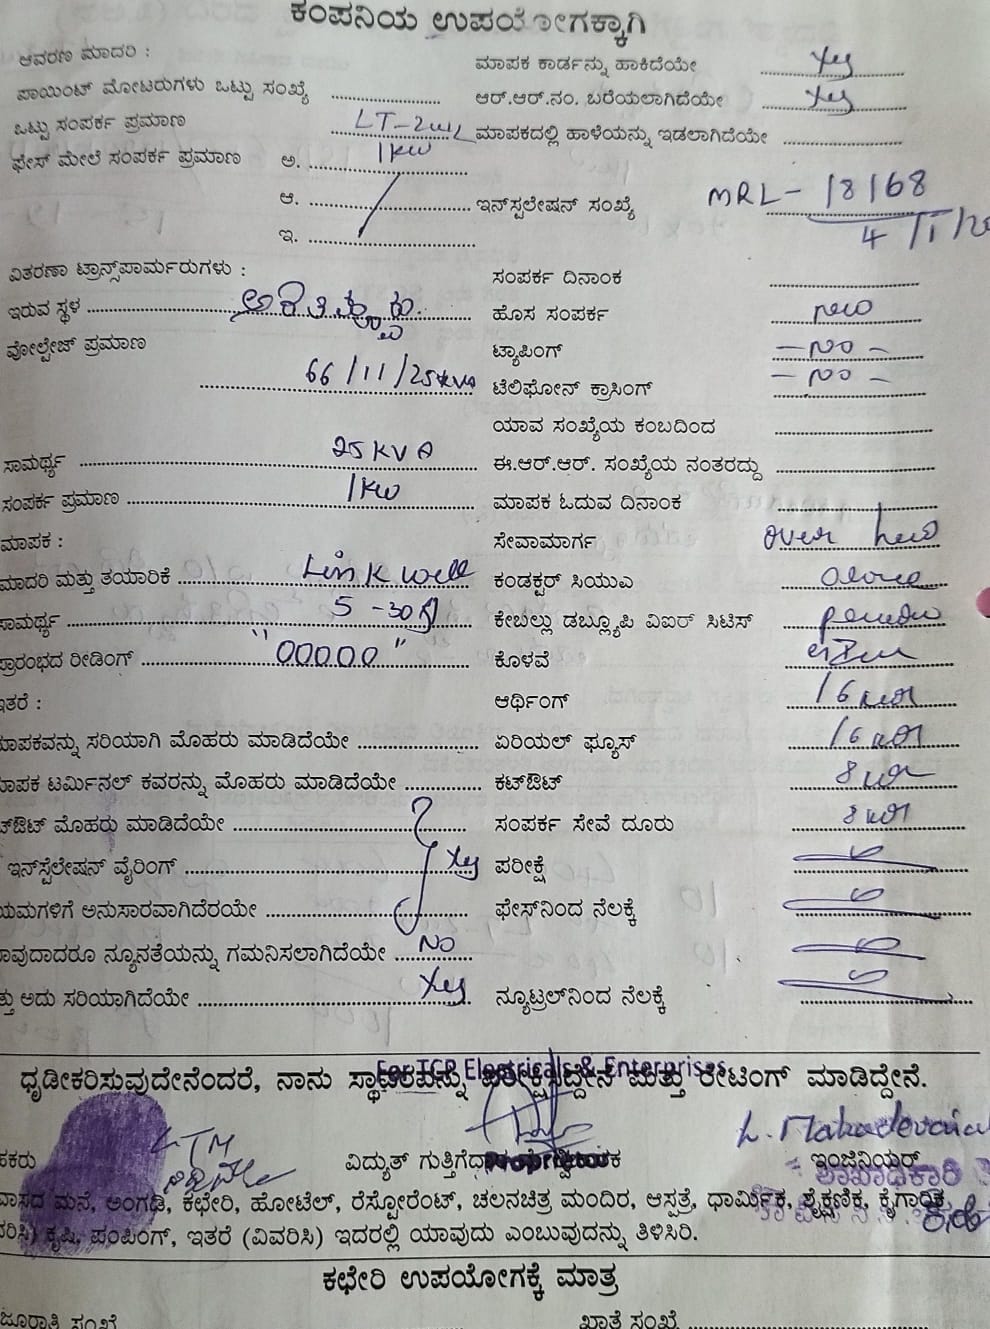 ಕಂಪನಿಯ ಉಪಯೋಗಕ್ಕಾಗಿ
ಆವರಣ ಮಾದರಿ :
ಮಾಪಕ ಕಾರ್ಡನ್ನು ಹಾಕಿದೆಯೇ Yes
ಪಾಯಿಂಟ್ ಮೋಟರುಗಳು ಒಟ್ಟು ಸಂಖ್ಯೆ
ಆರ್.ಆರ್.ನಂ. ಬರೆಯಲಾಗಿದೆಯೇ Yes
ಒಟ್ಟು ಸಂಪರ್ಕ ಪ್ರಮಾಣ LT-2
ಮಾಪಕದಲ್ಲಿ ಹಾಳೆಯನ್ನು ಇಡಲಾಗಿದೆಯೇ
ಫೇಸ್ ಮೇಲೆ ಸಂಪರ್ಕ ಪ್ರಮಾಣ ಅ. 1kw
ಆ.
ಇನ್‌ಸ್ಟಲೇಷನ್ ಸಂಖ್ಯೆ MRL- 18168
4/1/
ಇ.
ವಿತರಣಾ ಟ್ರಾನ್ಸ್‌ಪಾರ್ಮರುಗಳು :
ಸಂಪರ್ಕ ದಿನಾಂಕ
ಇರುವ ಸ್ಥಳ
ಹೊಸ ಸಂಪರ್ಕ new
ವೋಲ್ಟೇಜ್ ಪ್ರಮಾಣ
ಟ್ಯಾಪಿಂಗ್ -NO-
66/11/25kVA
ಟೆಲಿಫೋನ್ ಕ್ರಾಸಿಂಗ್ -NO-
ಯಾವ ಸಂಖ್ಯೆಯ ಕಂಬದಿಂದ
ಸಾಮರ್ಥ್ಯ 25KVA
ಈ.ಆರ್.ಆರ್. ಸಂಖ್ಯೆಯ ನಂತರದ್ದು
ಸಂಪರ್ಕ ಪ್ರಮಾಣ 1kw
ಮಾಪಕ ಓದುವ ದಿನಾಂಕ
ಮಾಪಕ :
ಸೇವಾಮಾರ್ಗ over
ಮಾದರಿ ಮತ್ತು ತಯಾರಿಕೆ Link well
ಕಂಡಕ್ಟರ್ ಸಿಯುಎ
ಸಾಮರ್ಥ್ಯ 5-30A
ಕೇಬಲ್ಲು ಡಬ್ಲ್ಯೂಪಿ ವಿಐರ್ ಸಿಟಿಸ್
ಪ್ರಾರಂಭದ ರೀಡಿಂಗ್ "00000"
ಕೊಳವೆ
ಇತರೆ :
ಆರ್ಥಿಂಗ್ 16
ಮಾಪಕವನ್ನು ಸರಿಯಾಗಿ ಮೊಹರು ಮಾಡಿದೆಯೇ
ಏರಿಯಲ್ ಫ್ಯೂಸ್ 16
ಮಾಪಕ ಟರ್ಮಿನಲ್ ಕವರನ್ನು ಮೊಹರು ಮಾಡಿದೆಯೇ
ಕಟ್‌ಔಟ್ 8
ಟ್‌ಔಟ್ ಮೊಹರು ಮಾಡಿದೆಯೇ
ಸಂಪರ್ಕ ಸೇವೆ ದೂರು 8
ಇನ್‌ಸ್ಟೆಲೇಷನ್ ವೈರಿಂಗ್ Yes
ಪರೀಕ್ಷೆ
ಯಮಗಳಿಗೆ ಅನುಸಾರವಾಗಿದೆರಯೇ
ಫೇಸ್‌ನಿಂದ ನೆಲಕ್ಕೆ
ಾವುದಾದರೂ ನ್ಯೂನತೆಯನ್ನು ಗಮನಿಸಲಾಗಿದೆಯೇ NO
ತ್ತು ಅದು ಸರಿಯಾಗಿದೆಯೇ Yes
ನ್ಯೂಟ್ರಲ್‌ನಿಂದ ನೆಲಕ್ಕೆ
For TGP Electricals & Enterprises
ಧೃಡೀಕರಿಸುವುದೇನೆಂದರೆ, ನಾನು ಸ್ಥಾವರವನ್ನು ಪರೀಕ್ಷಿಸಿದ್ದೇನೆ ಮತ್ತು ರೇಟಿಂಗ್ ಮಾಡಿದ್ದೇನೆ.
LTM
L. Mahadevaia
ಹಕರು
ವಿದ್ಯುತ್ ಗುತ್ತಿಗೆದಾರ
ಇಂಜಿನಿಯರ್
ವಾಸದ ಮನೆ, ಅಂಗಡಿ, ಕಛೇರಿ, ಹೋಟೆಲ್, ರೆಸ್ಟೋರೆಂಟ್, ಚಲನಚಿತ್ರ ಮಂದಿರ, ಆಸ್ಪತ್ರೆ, ಧಾರ್ಮಿಕ, ಶೈಕ್ಷಣಿಕ, ಕೈಗಾರಿಕ,
ರಿಸಿ) ಕೃಷಿ, ಪಂಪಿಂಗ್, ಇತರೆ (ವಿವರಿಸಿ) ಇದರಲ್ಲಿ ಯಾವುದು ಎಂಬುವುದನ್ನು ತಿಳಿಸಿರಿ.
ಕಛೇರಿ ಉಪಯೋಗಕ್ಕೆ ಮಾತ್ರ
ಜೂರಾತಿ ಸಂಖ್ಯೆ
ಖಾತೆ ಸಂಖ್ಯೆ